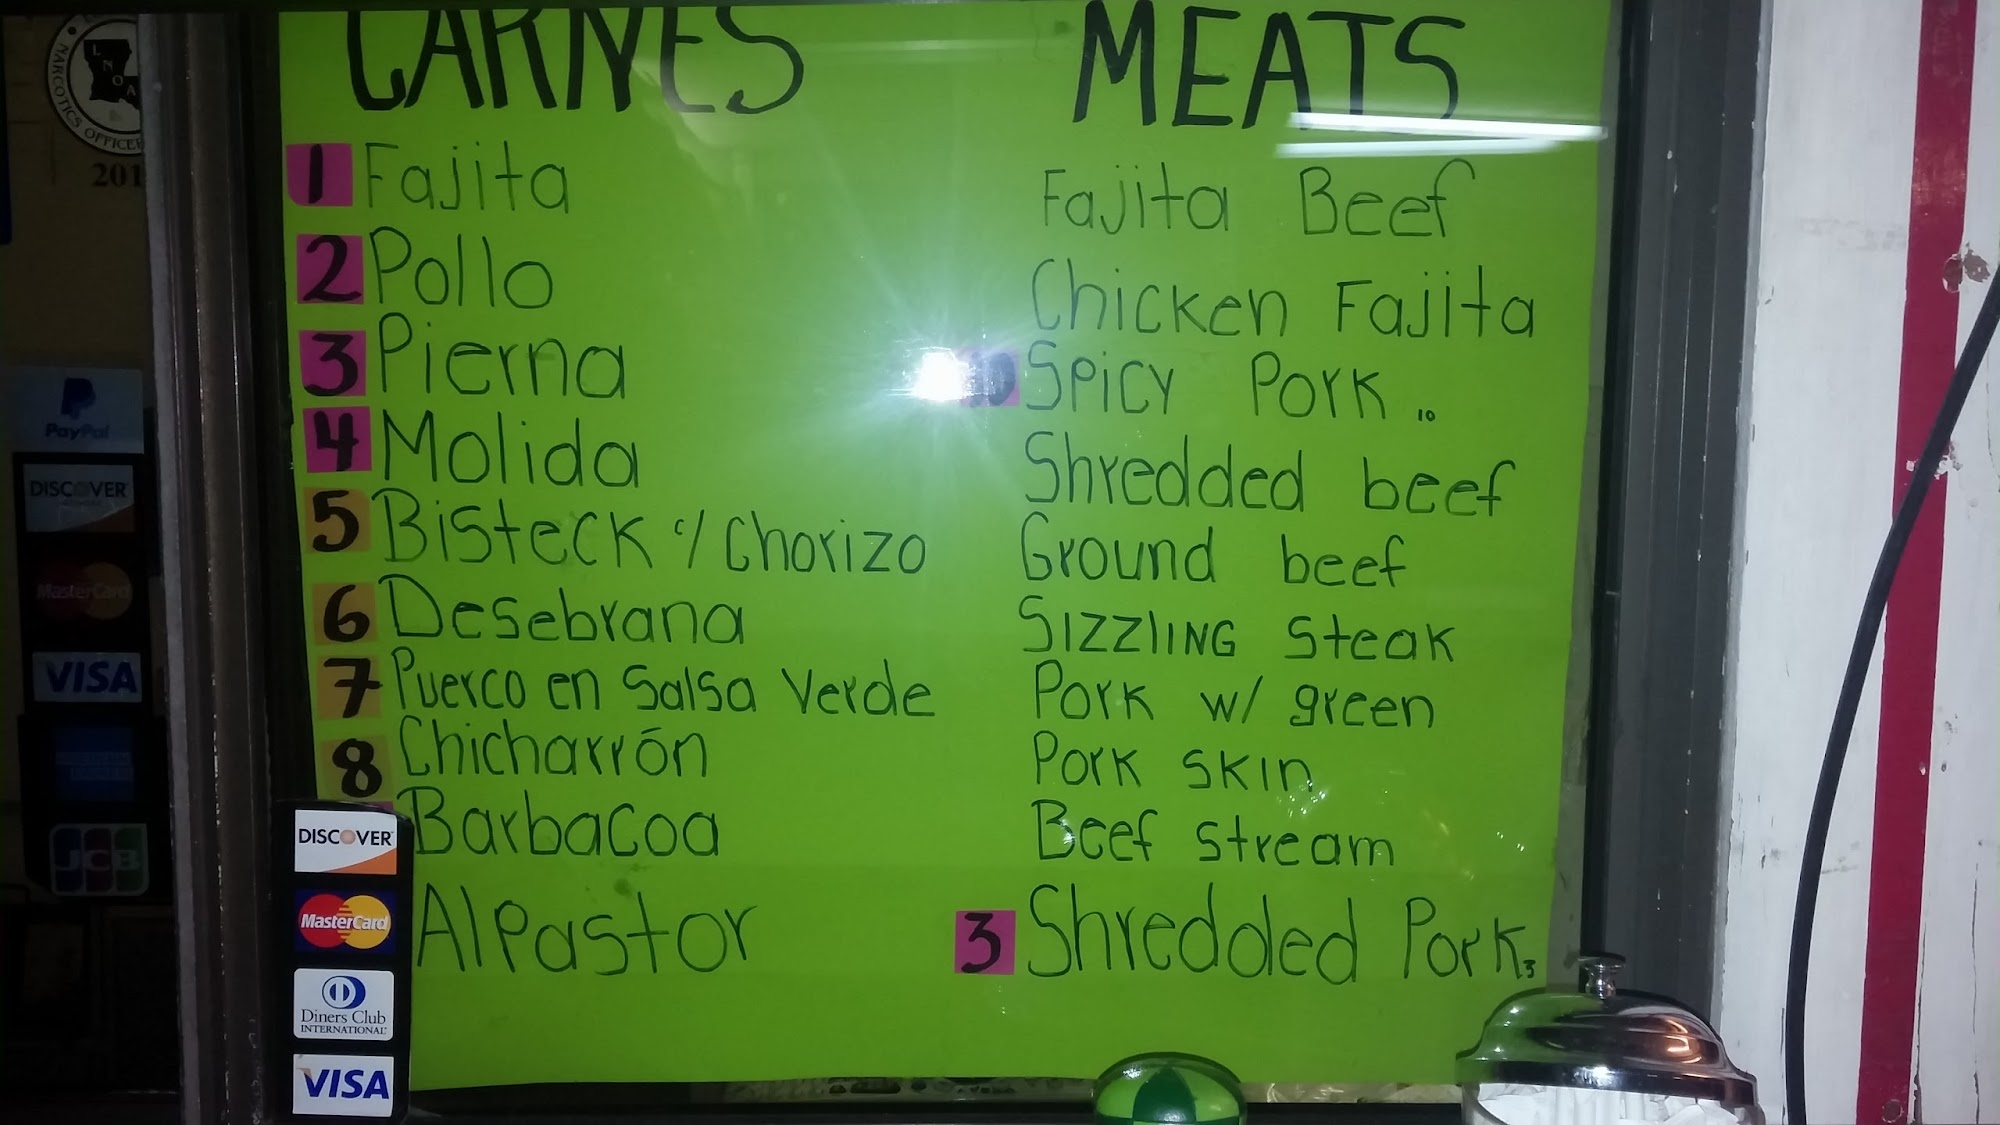 CARNES
1 Fajita
2 Pollo
3 Pierna
4 Molida
5 Bisteck c/ Chorizo
6 Desebrana
7 Puerco en Salsa Verde
8 Chicharrón
Barbacoa
AlPastor
MEATS
Fajita Beef
Chicken Fajita
10 Spicy Pork 10
Shredded beef
Ground beef
SIZZlING Steak
Pork w/ green
Pork skin
Beef stream
3 Shredded Pork 3
L
N
O
A
NARCOTICS OFFICER
201
PayPal
DISCOVER
MasterCard
VISA
AMERICAN EXPRESS
JCB
DISCOVER
MasterCard
Diners Club
INTERNATIONAL
VISA